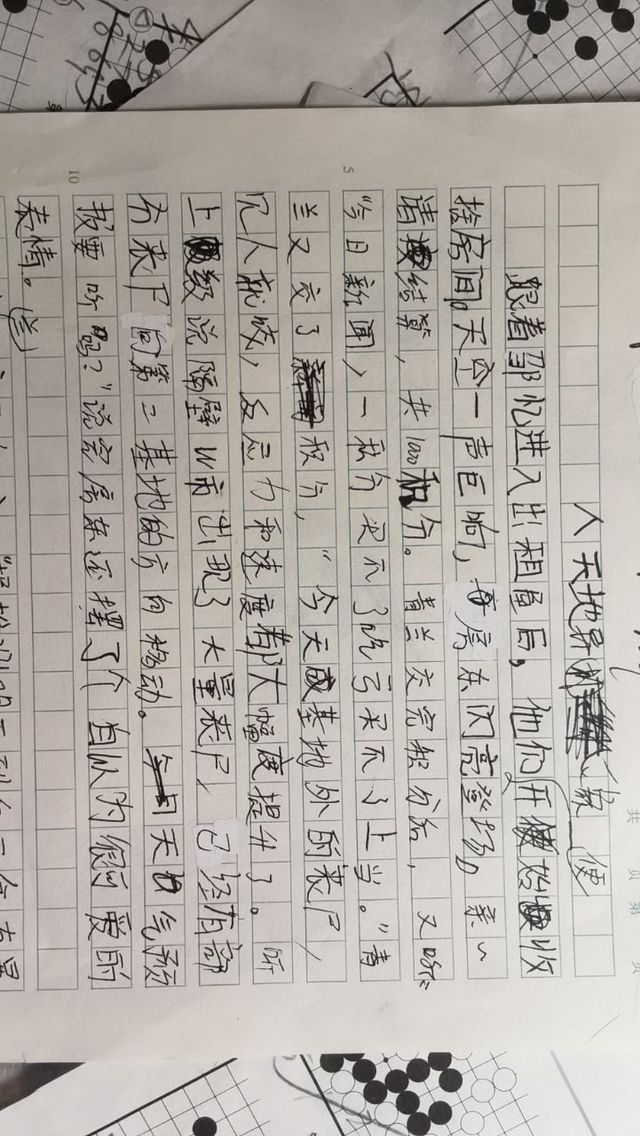 天地异
跟着邹忆进入出租屋后，他们便开始收
拾房间。天空一声巨响，房东闪亮登场。亲~
请结算，共1000积分。青兰交完积分后，又
“今日新闻，一积分买不了吃亏买不了上当。”青
兰又交了积分，“今天基地外的丧尸，
咒人就咬，反应力和速度都大幅度提升了。听
上级说隔壁W市出现了大量丧尸，已经有部
分丧尸向第二基地的方向移动。天气预
报要听吗？”说完房东还摆了个自认为很可爱的
表情。(兰)
5
10
共 页 第 页